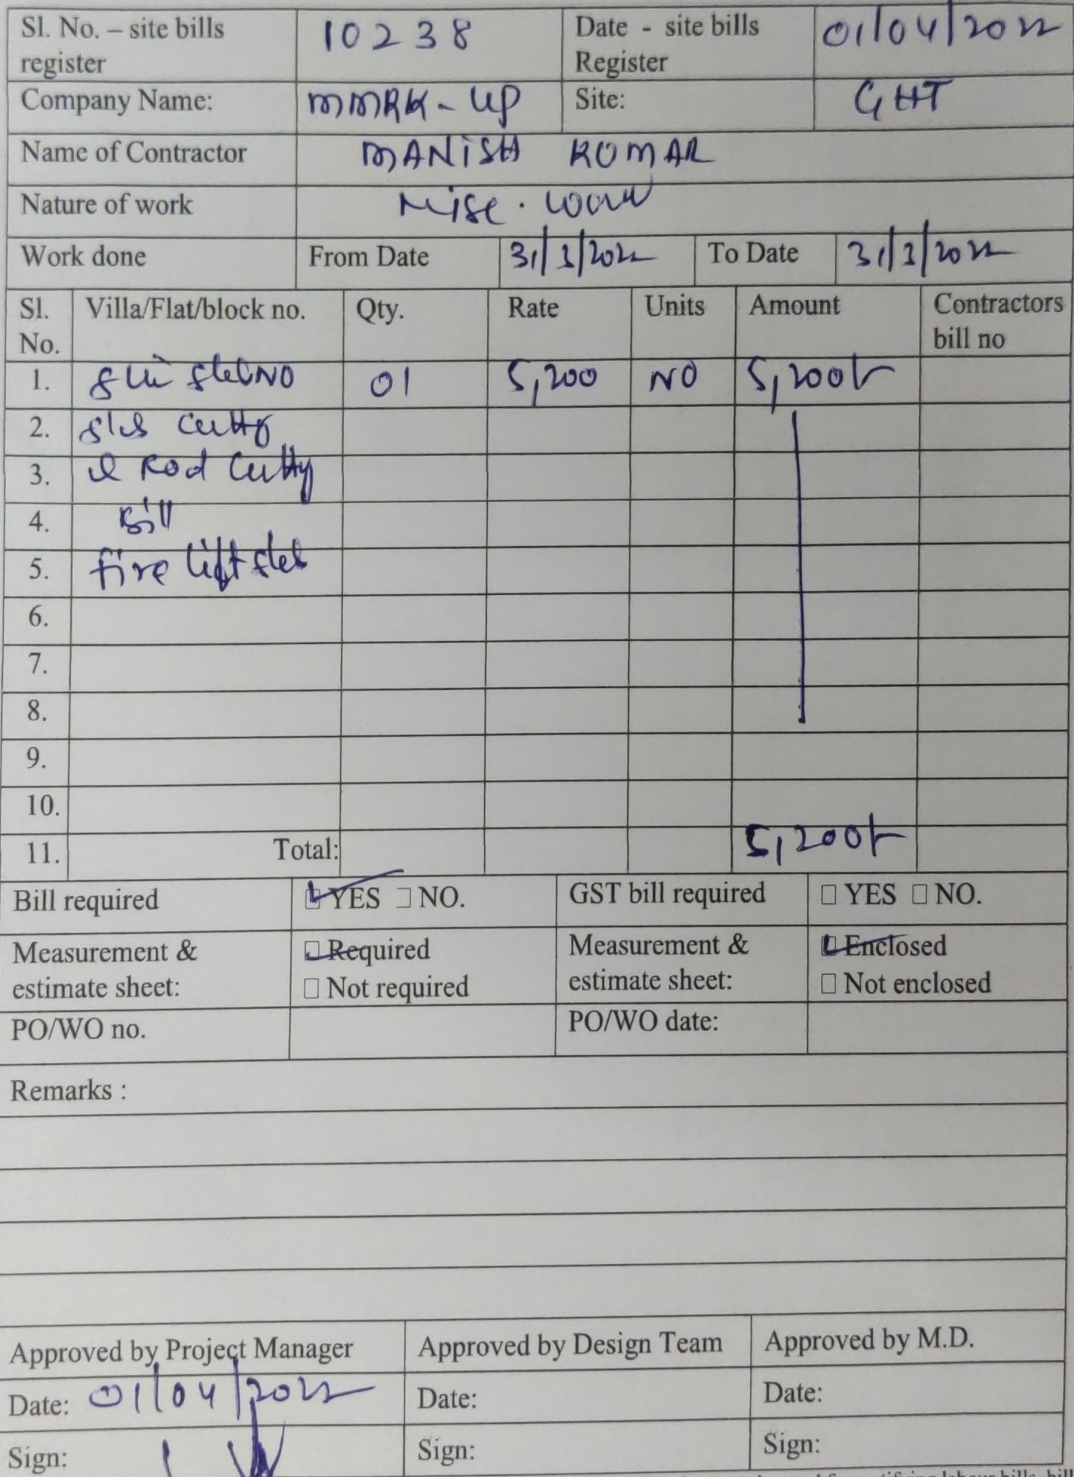 Sl. No. – site bills register 10238 Date - site bills Register 01/04/2022
Company Name: MMRK-UP Site: GHT
Name of Contractor MANISH KUMAR
Nature of work Misc. work
Work done From Date 31/3/2022 To Date 31/3/2022
Sl. No. Villa/Flat/block no. Qty. Rate Units Amount Contractors bill no
1. NO 01 5,200 NO 5,200/-
2.
3. Rod
4. Bill
5. fire lift
6.
7.
8.
9.
10.
11. Total: 5,200/-
Bill required YES NO. GST bill required YES NO.
Measurement & estimate sheet: Required Measurement & estimate sheet: Enclosed
Not required Not enclosed
PO/WO no. PO/WO date:
Remarks :
Approved by Project Manager Approved by Design Team Approved by M.D.
Date: 01/04/2022 Date: Date:
Sign: Sign: Sign: